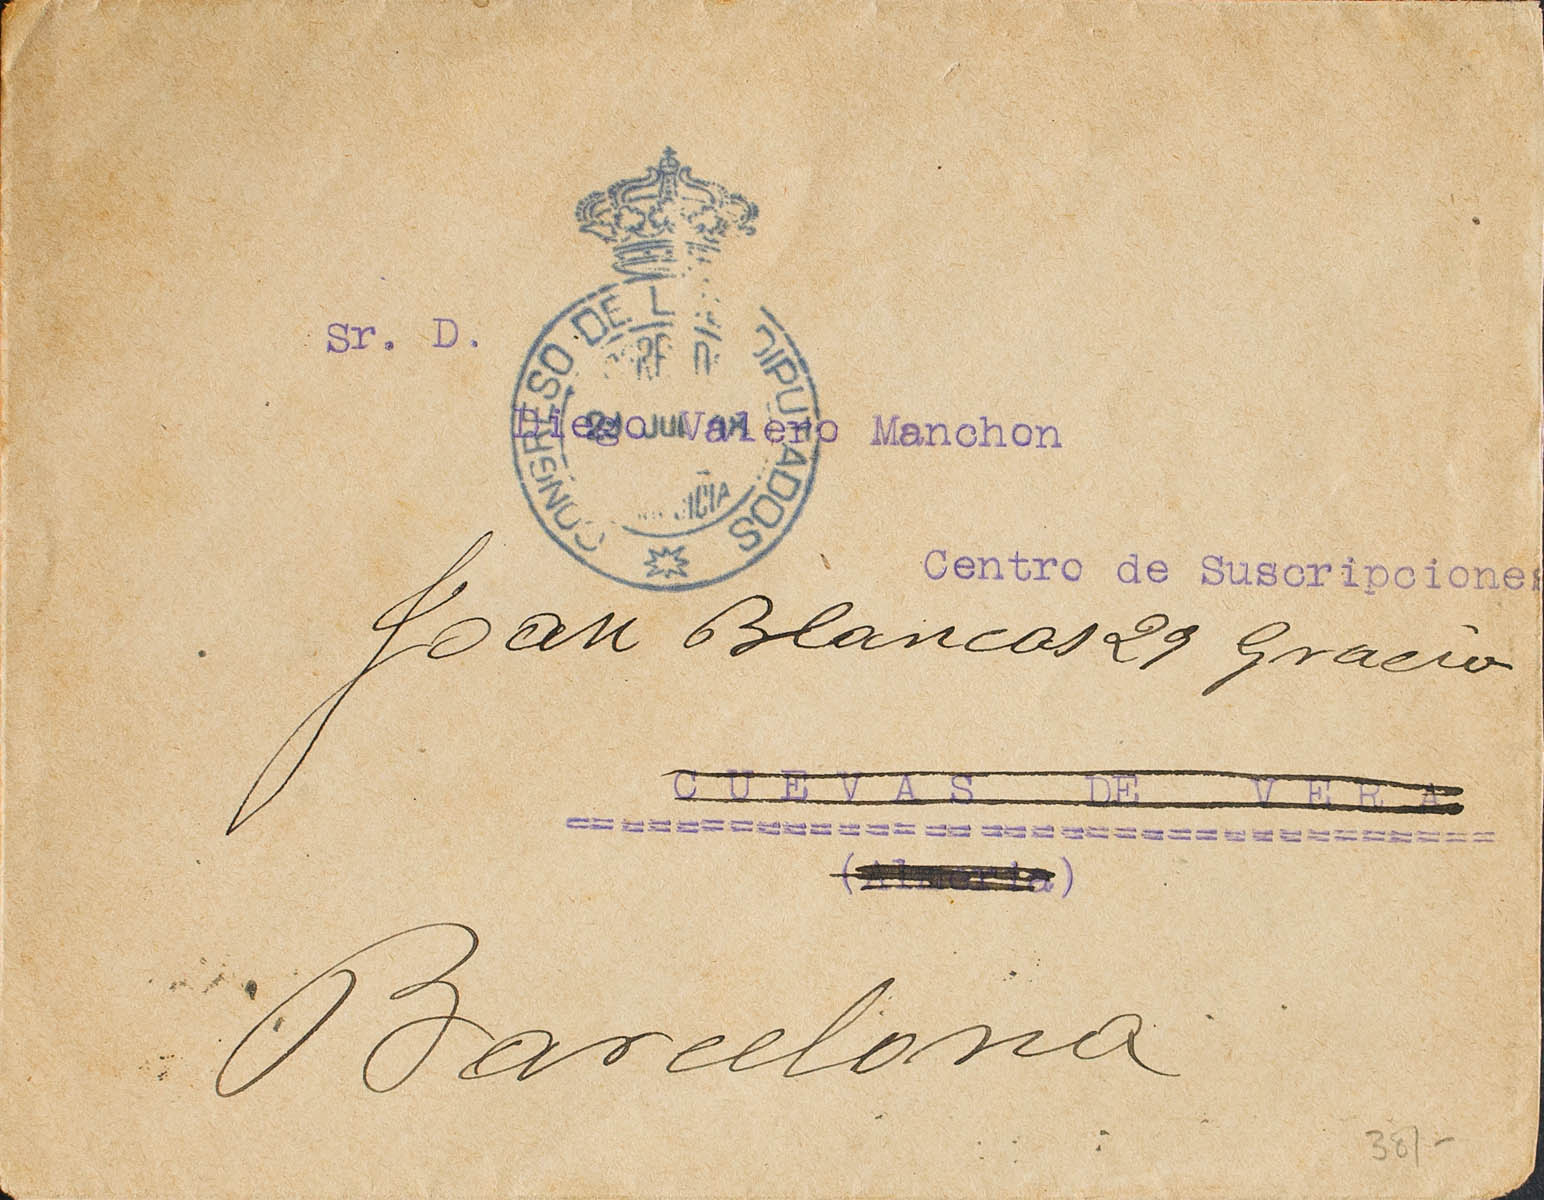 CONGRESO DE L DIPUTADOS
Sr. D.
Diego Valero Manchon
Centro de Suscripciones
Joan Blancas 29 Gracia
CUEVAS DE VERA
(Almeria)
Barcelona
38/-